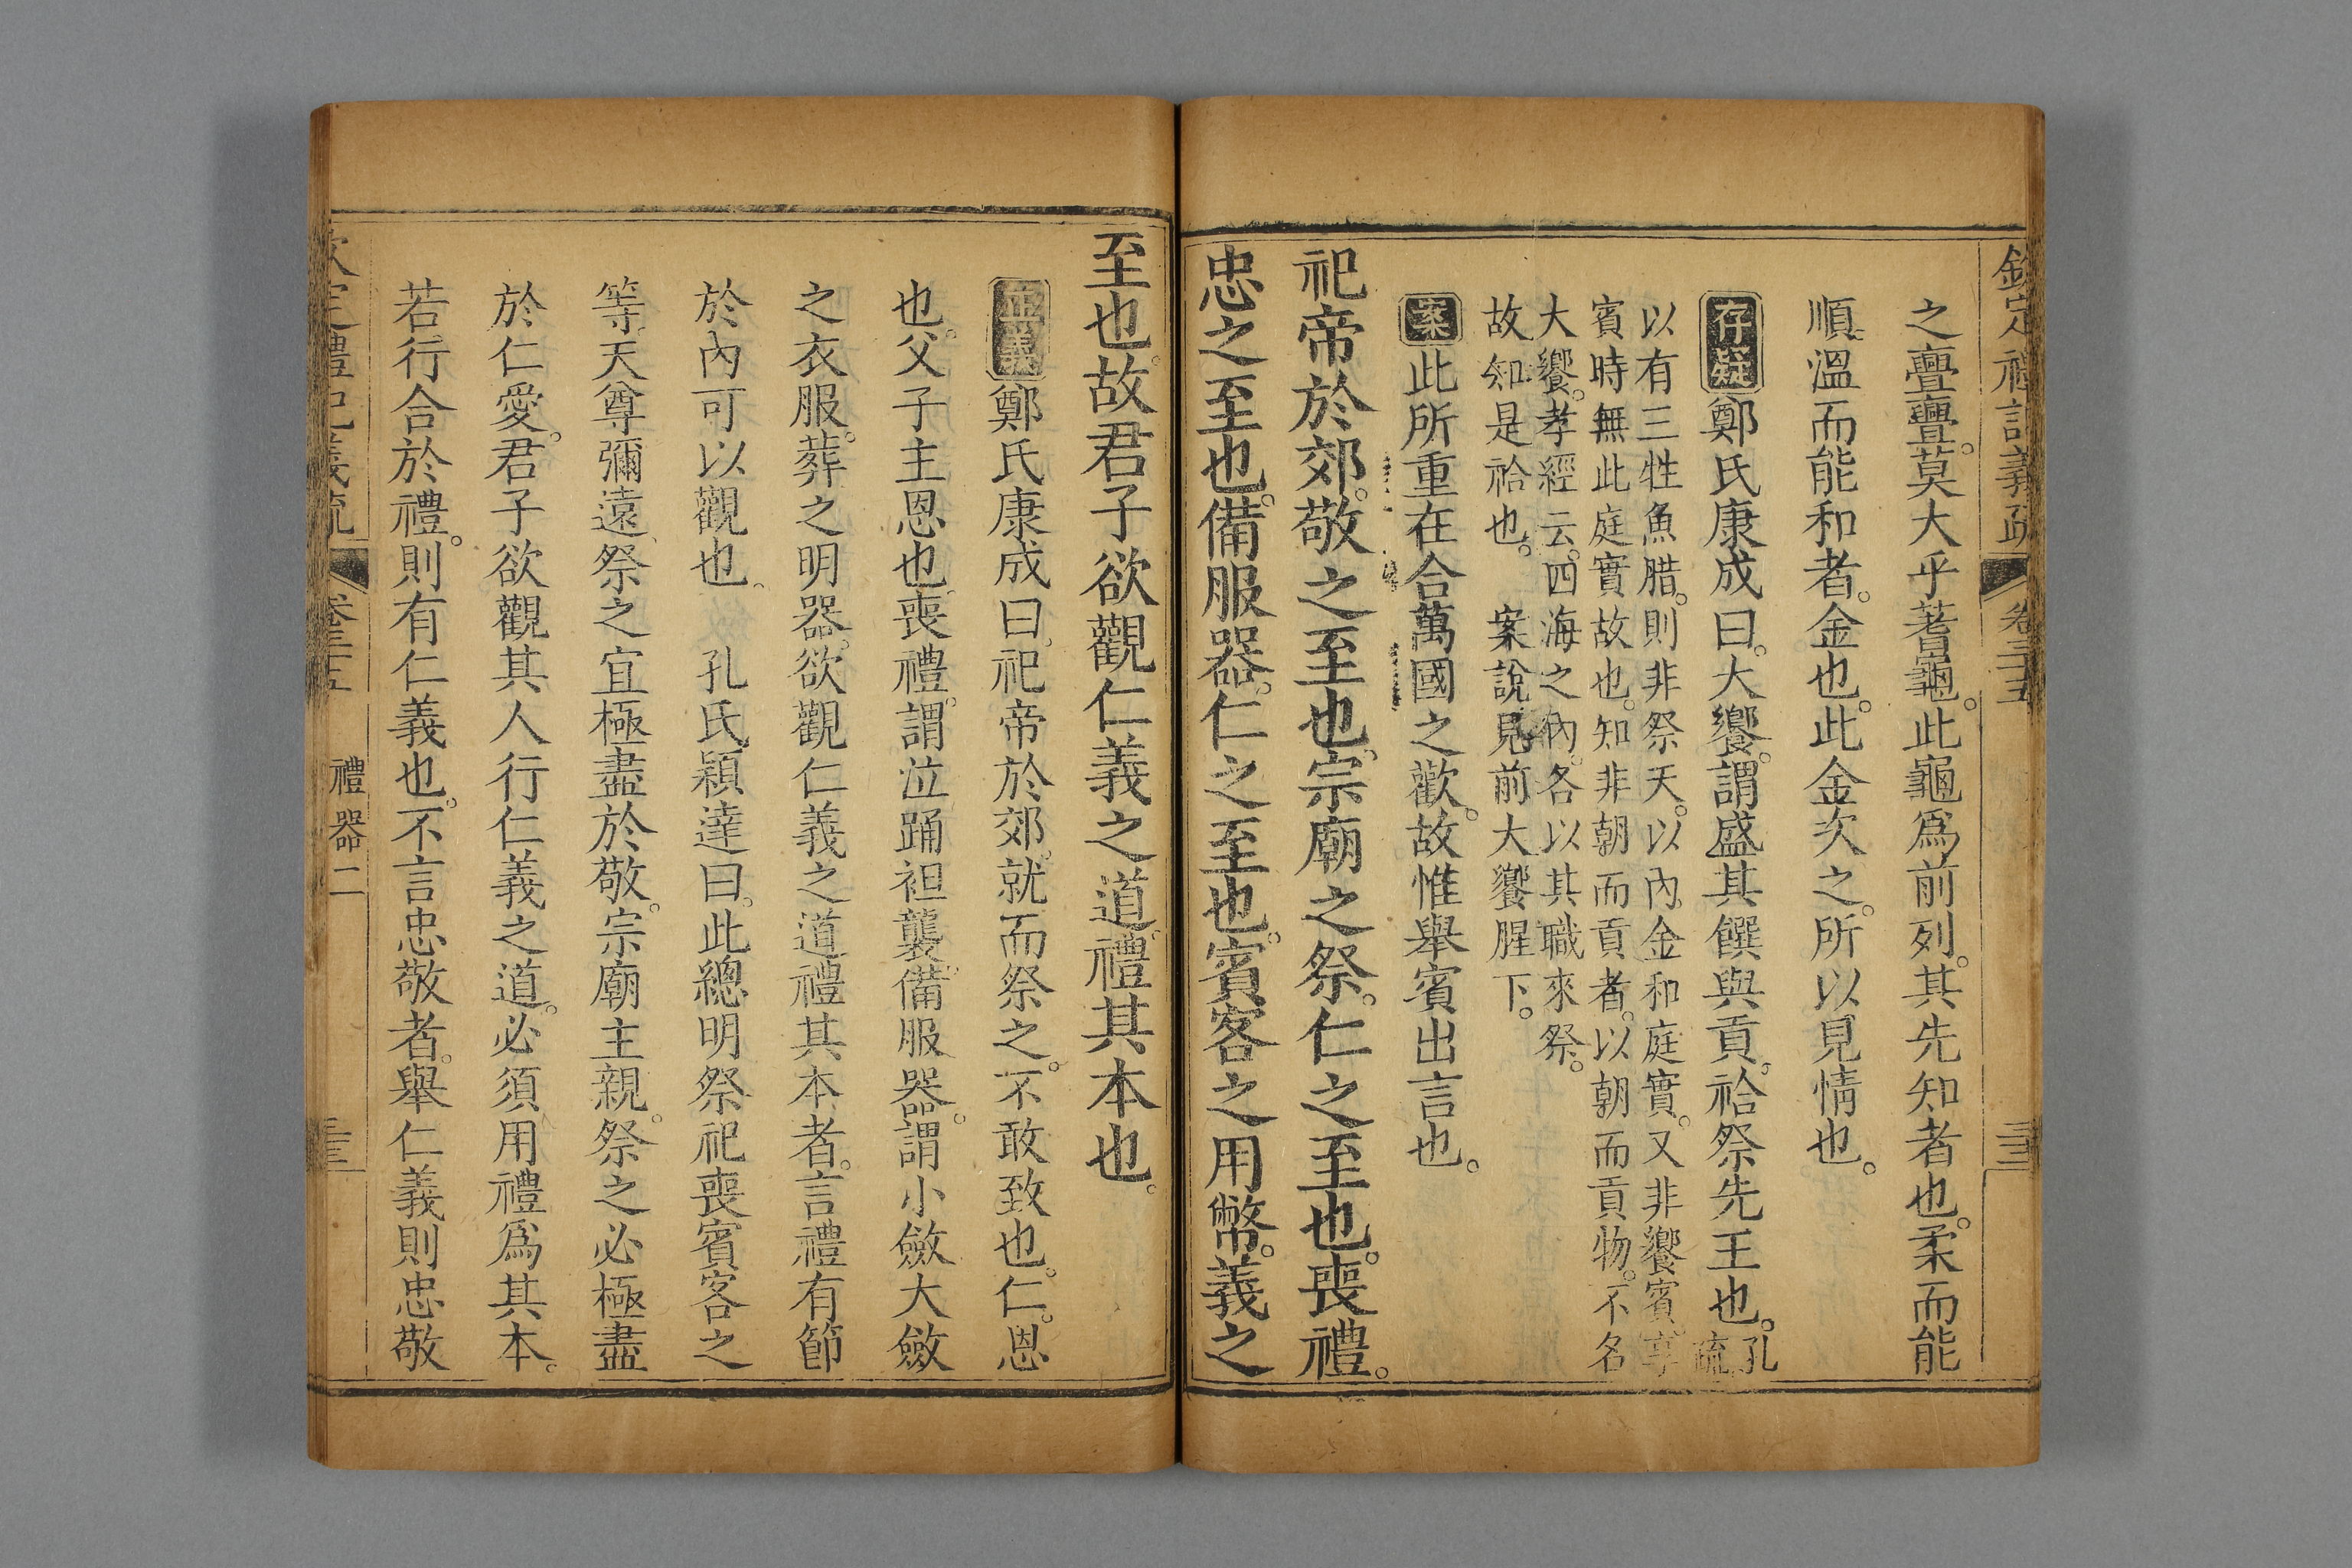 欽定禮記義疏 卷三十五
之亹亹。莫大乎蓍龜。此龜爲前列。其先知者也。柔而能
順。溫而能和者。金也。此金次之。所以見情也。
存疑 鄭氏康成曰。大饗。謂盛其饌與貢。祫祭先王也。孔疏。
以有三牲魚腊。則非祭天。以內金和庭實。又非饗賓。享
賓時無此庭實故也。知非朝而貢者。以朝而貢物。不名
大饗。孝經云。四海之內。各以其職來祭。
故知是祫也。 案說見前大饗腥下。
案 此所重在合萬國之歡。故惟舉賓出言也。
祀帝於郊。敬之至也。宗廟之祭。仁之至也。喪禮。
忠之至也。備服器。仁之至也。賓客之用幣。義之
至也。故君子欲觀仁義之道。禮其本也。
正義 鄭氏康成曰。祀帝於郊。就而祭之。不敢致也。仁。恩
也。父子主恩也。喪禮。謂泣踊袒襲。備服器。謂小斂大斂
之衣服。葬之明器。欲觀仁義之道。禮其本者。言禮有節
於內可以觀也。 孔氏穎達曰。此總明祭祀喪賓客之
等。天尊彌遠。祭之宜極盡於敬。宗廟主親。祭之必極盡
於仁愛。君子欲觀其人行仁義之道。必須用禮爲其本。
若行合於禮。則有仁義也。不言忠敬者。舉仁義則忠敬
欽定禮記義疏 卷三十五 禮器二